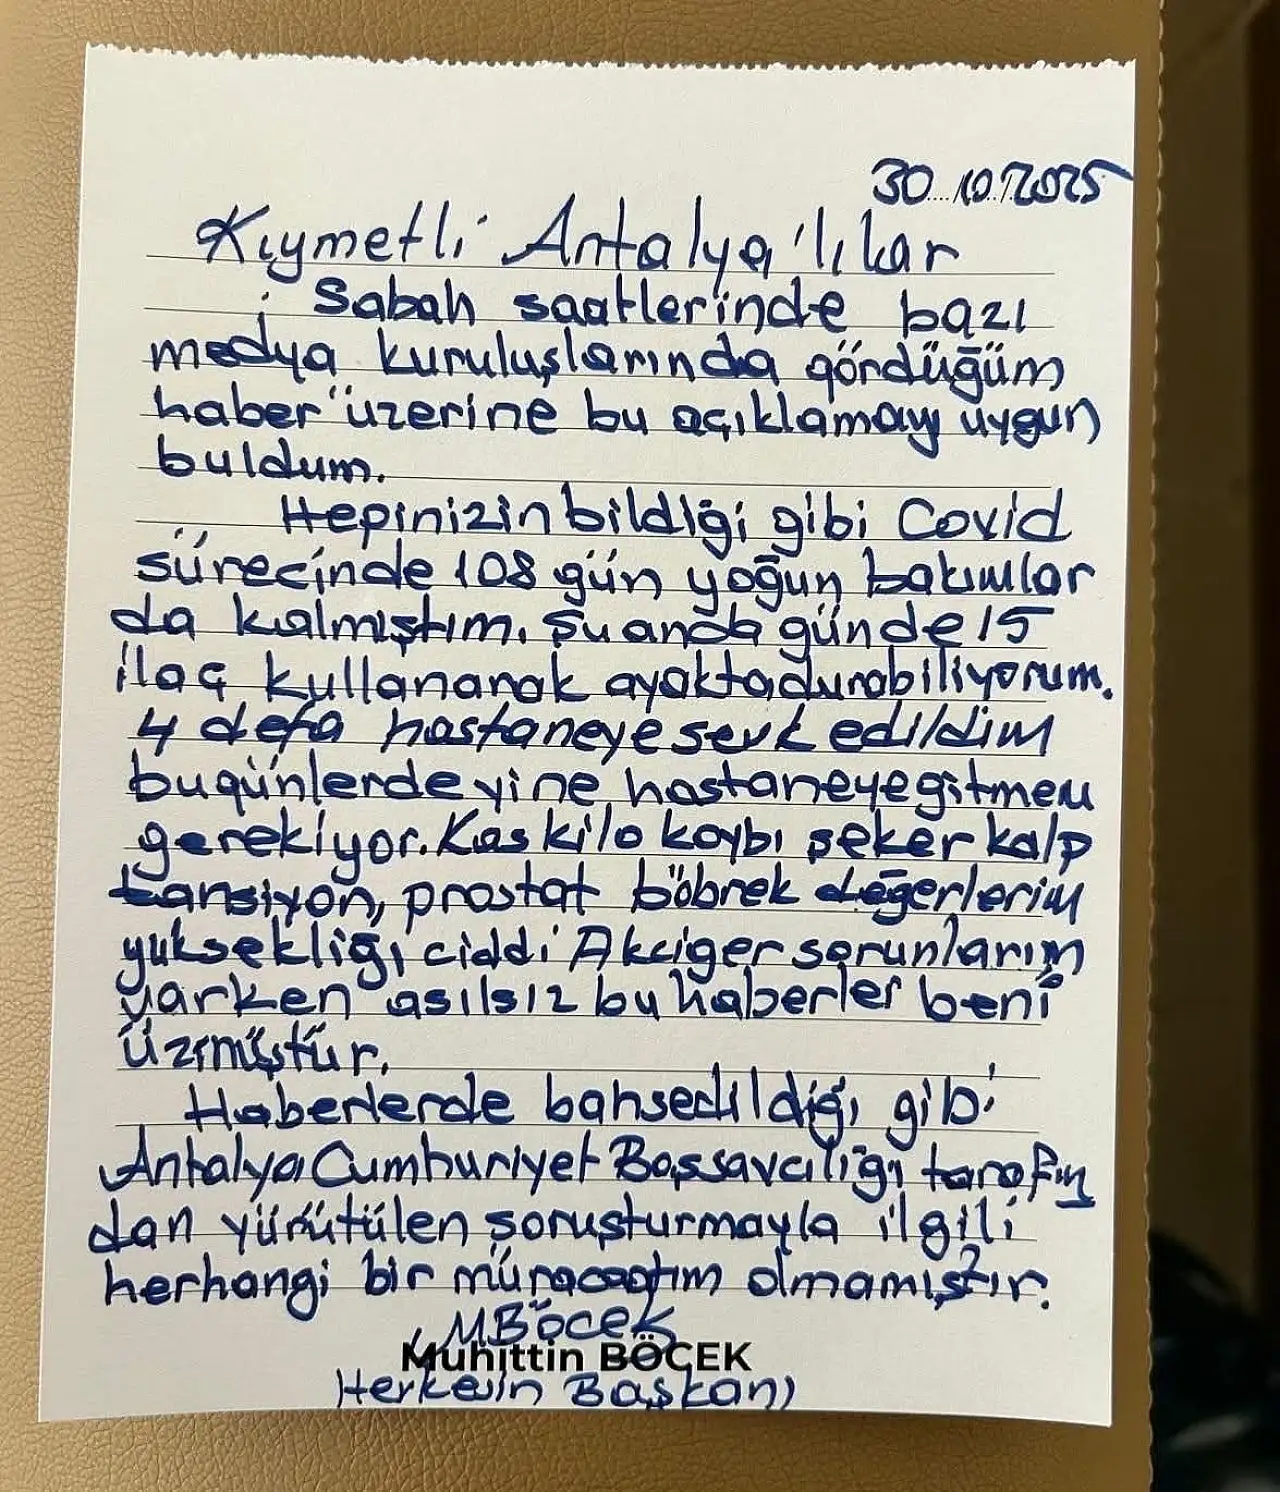 30.10.2025
Kıymetli Antalya'lılar
Sabah saatlerinde bazı
medya kuruluşlarında gördüğüm
haber üzerine bu açıklamayı uygun
buldum.
Hepinizin bildiği gibi Covid
sürecinde 108 gün yoğun bakımlar
da kalmıştım. Şu anda günde 15
ilaç kullanarak ayakta durabiliyorum.
4 defa hastaneye sevk edildim
bugünlerde yine hastaneye gitmem
gerekiyor. Kas kilo kaybı şeker kalp
tansiyon, prostat böbrek değerlerim
yüksekliği ciddi Akciğer sorunlarım
varken asılsız bu haberler beni
üzmüştür.
Haberlerde bahsedildiği gibi
Antalya Cumhuriyet Başsavcılığı tarafın
dan yürütülen soruşturmayla ilgili
herhangi bir müracaatım olmamıştır.
M BÖCEK
Muhittin BÖCEK
Herkesin Başkanı